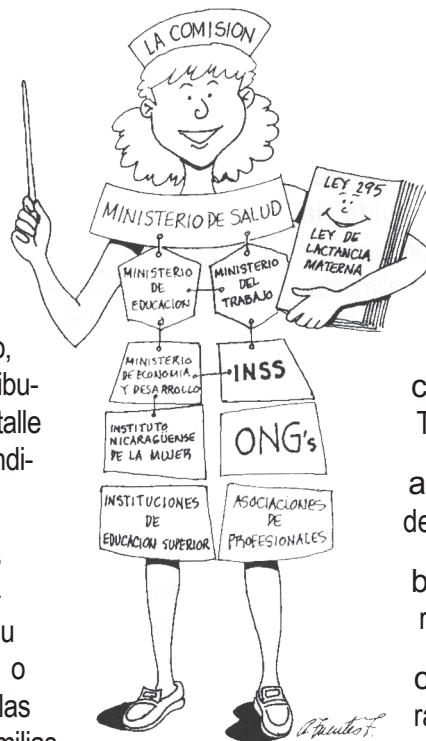 LA COMISION
MINISTERIO DE SALUD
LEY 295
LEY DE
LACTANCIA
MATERNA
MINISTERIO
DE
EDUCACION
MINISTERIO
DEL
TRABAJO
MINISTERIO
DE ECONOMIA
Y DESARROLLO
INSS
INSTITUTO
NICARAGÜENSE
DE LA MUJER
ONG's
INSTITUCIONES
DE
EDUCACION SUPERIOR
ASOCIACIONES
DE
PROFESIONALES
A. Fuentes F.
o,
ribu-
talle
ndi-
s
u
o
las
milias
c
T
a
de
b
r
c
ra